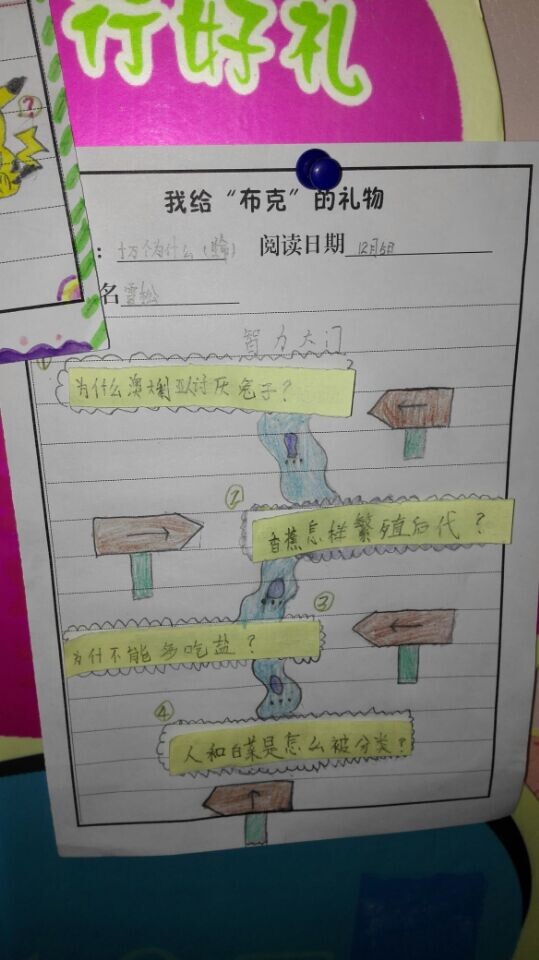 行好礼
我给“布克”的礼物
: 十万个为什么 阅读日期 12月5日
名 雪松
智力大门
①
为什么澳大利亚人讨厌兔子？
②
香蕉怎样繁殖后代？
③
为什不能多吃盐？
④
人和白菜是怎么被分类？